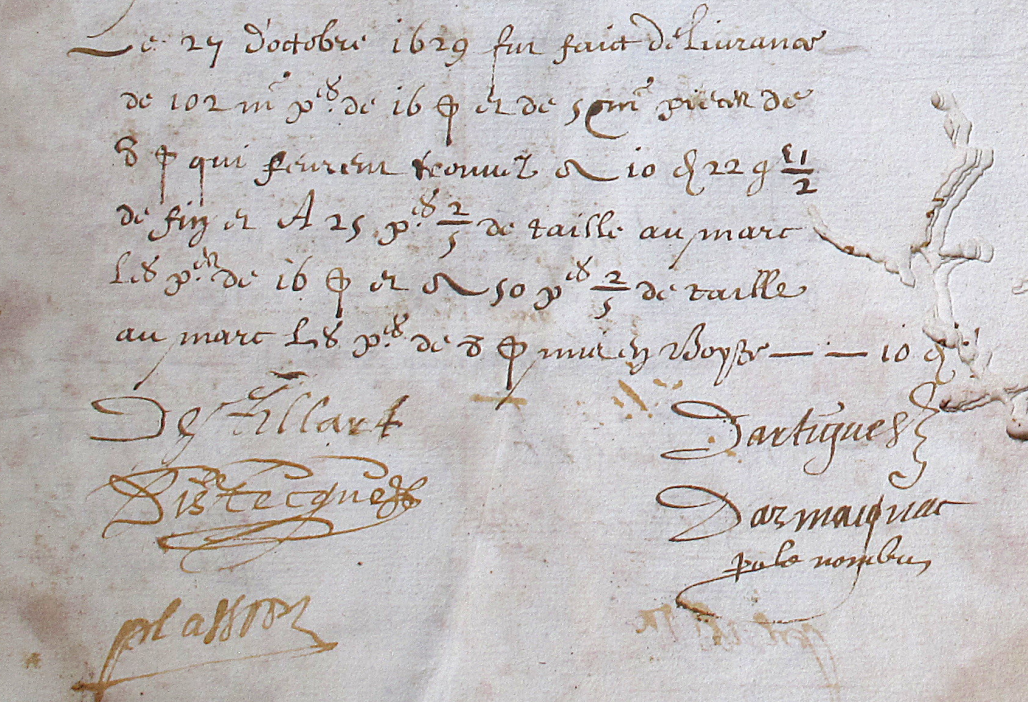 Le 27 d'octobre 1629 fut faict delivrance
de 102 m pes de 16 et de 5 m pieces de
8 qui feurent trouvez A 10 d 22 g 1/2
de fin et A 25 pes 2/5 de taille au marc
les pes de 16 et A 50 pes 2/5 de taille
au marc les pes de 8 mis en Boyste — — 10 d
De Tillart
Dartigues
Distecques
Darmaignac
po le nombre
plasson